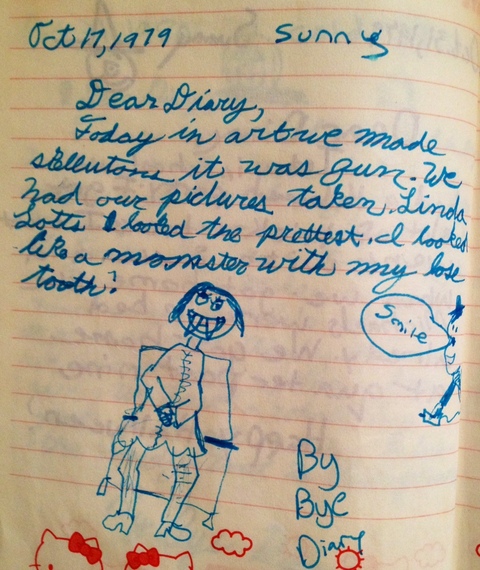 Oct 17, 1979 Sunny
Dear Diary,
Today in art we made
skellutons it was fun. We
had our pictures taken. Linda
Lotts looked the prettest. I looked
like a momster with my lose
tooth!
Smile
By
Bye
Diary